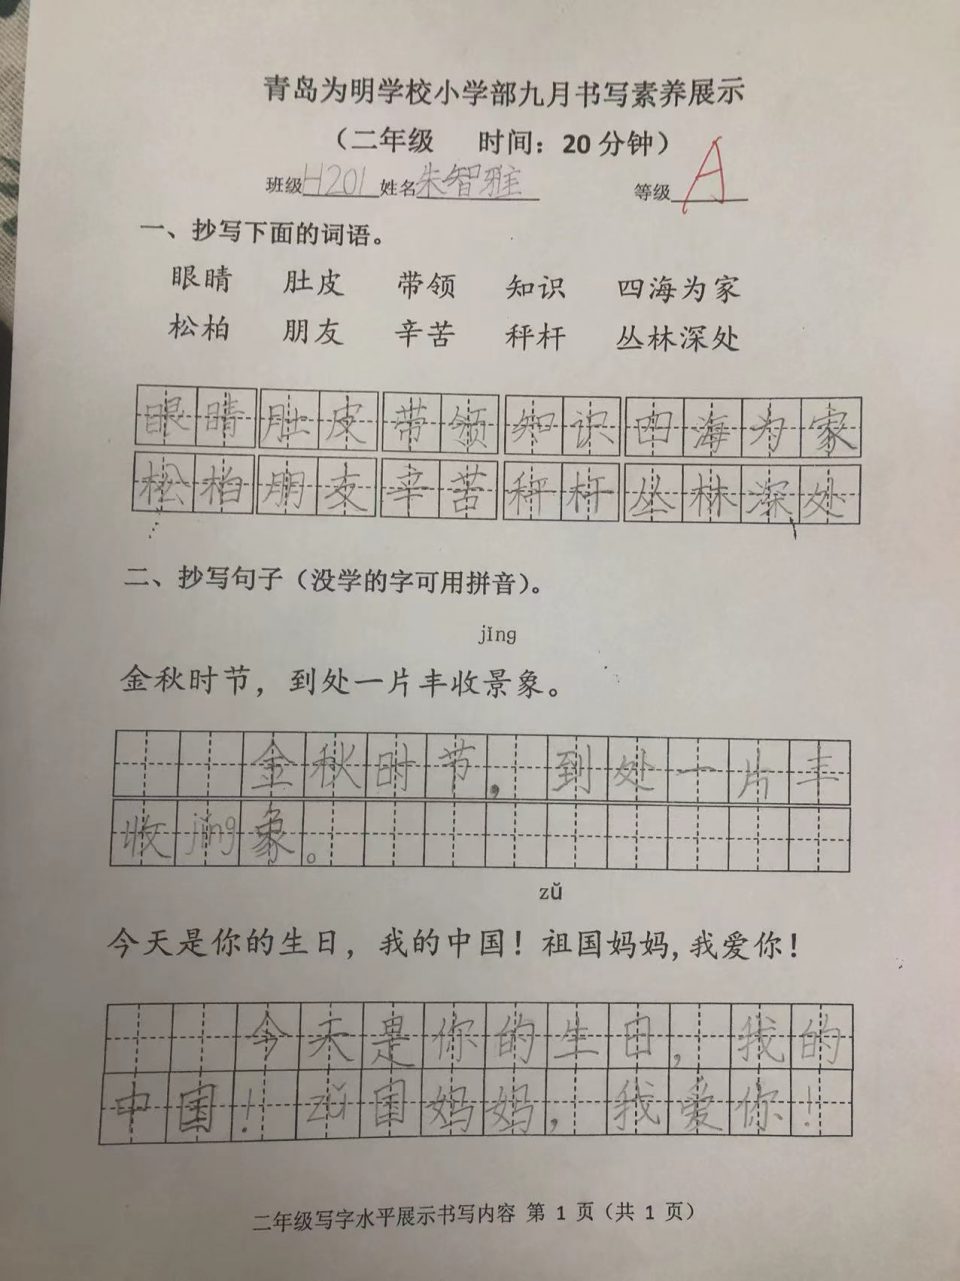 青岛为明学校小学部九月书写素养展示
（二年级 时间：20分钟）
班级H201姓名朱智雅 等级A
一、抄写下面的词语。
眼睛 肚皮 带领 知识 四海为家
松柏 朋友 辛苦 秤杆 丛林深处
眼睛肚皮带领知识四海为家
松柏朋友辛苦秤杆丛林深处
二、抄写句子（没学的字可用拼音）。
jǐng
金秋时节，到处一片丰收景象。
金秋时节，到处一片丰
收jǐng象。
zǔ
今天是你的生日，我的中国！祖国妈妈，我爱你！
今天是你的生日，我的
中国！zǔ国妈妈，我爱你！
二年级写字水平展示书写内容 第 1 页（共 1 页）